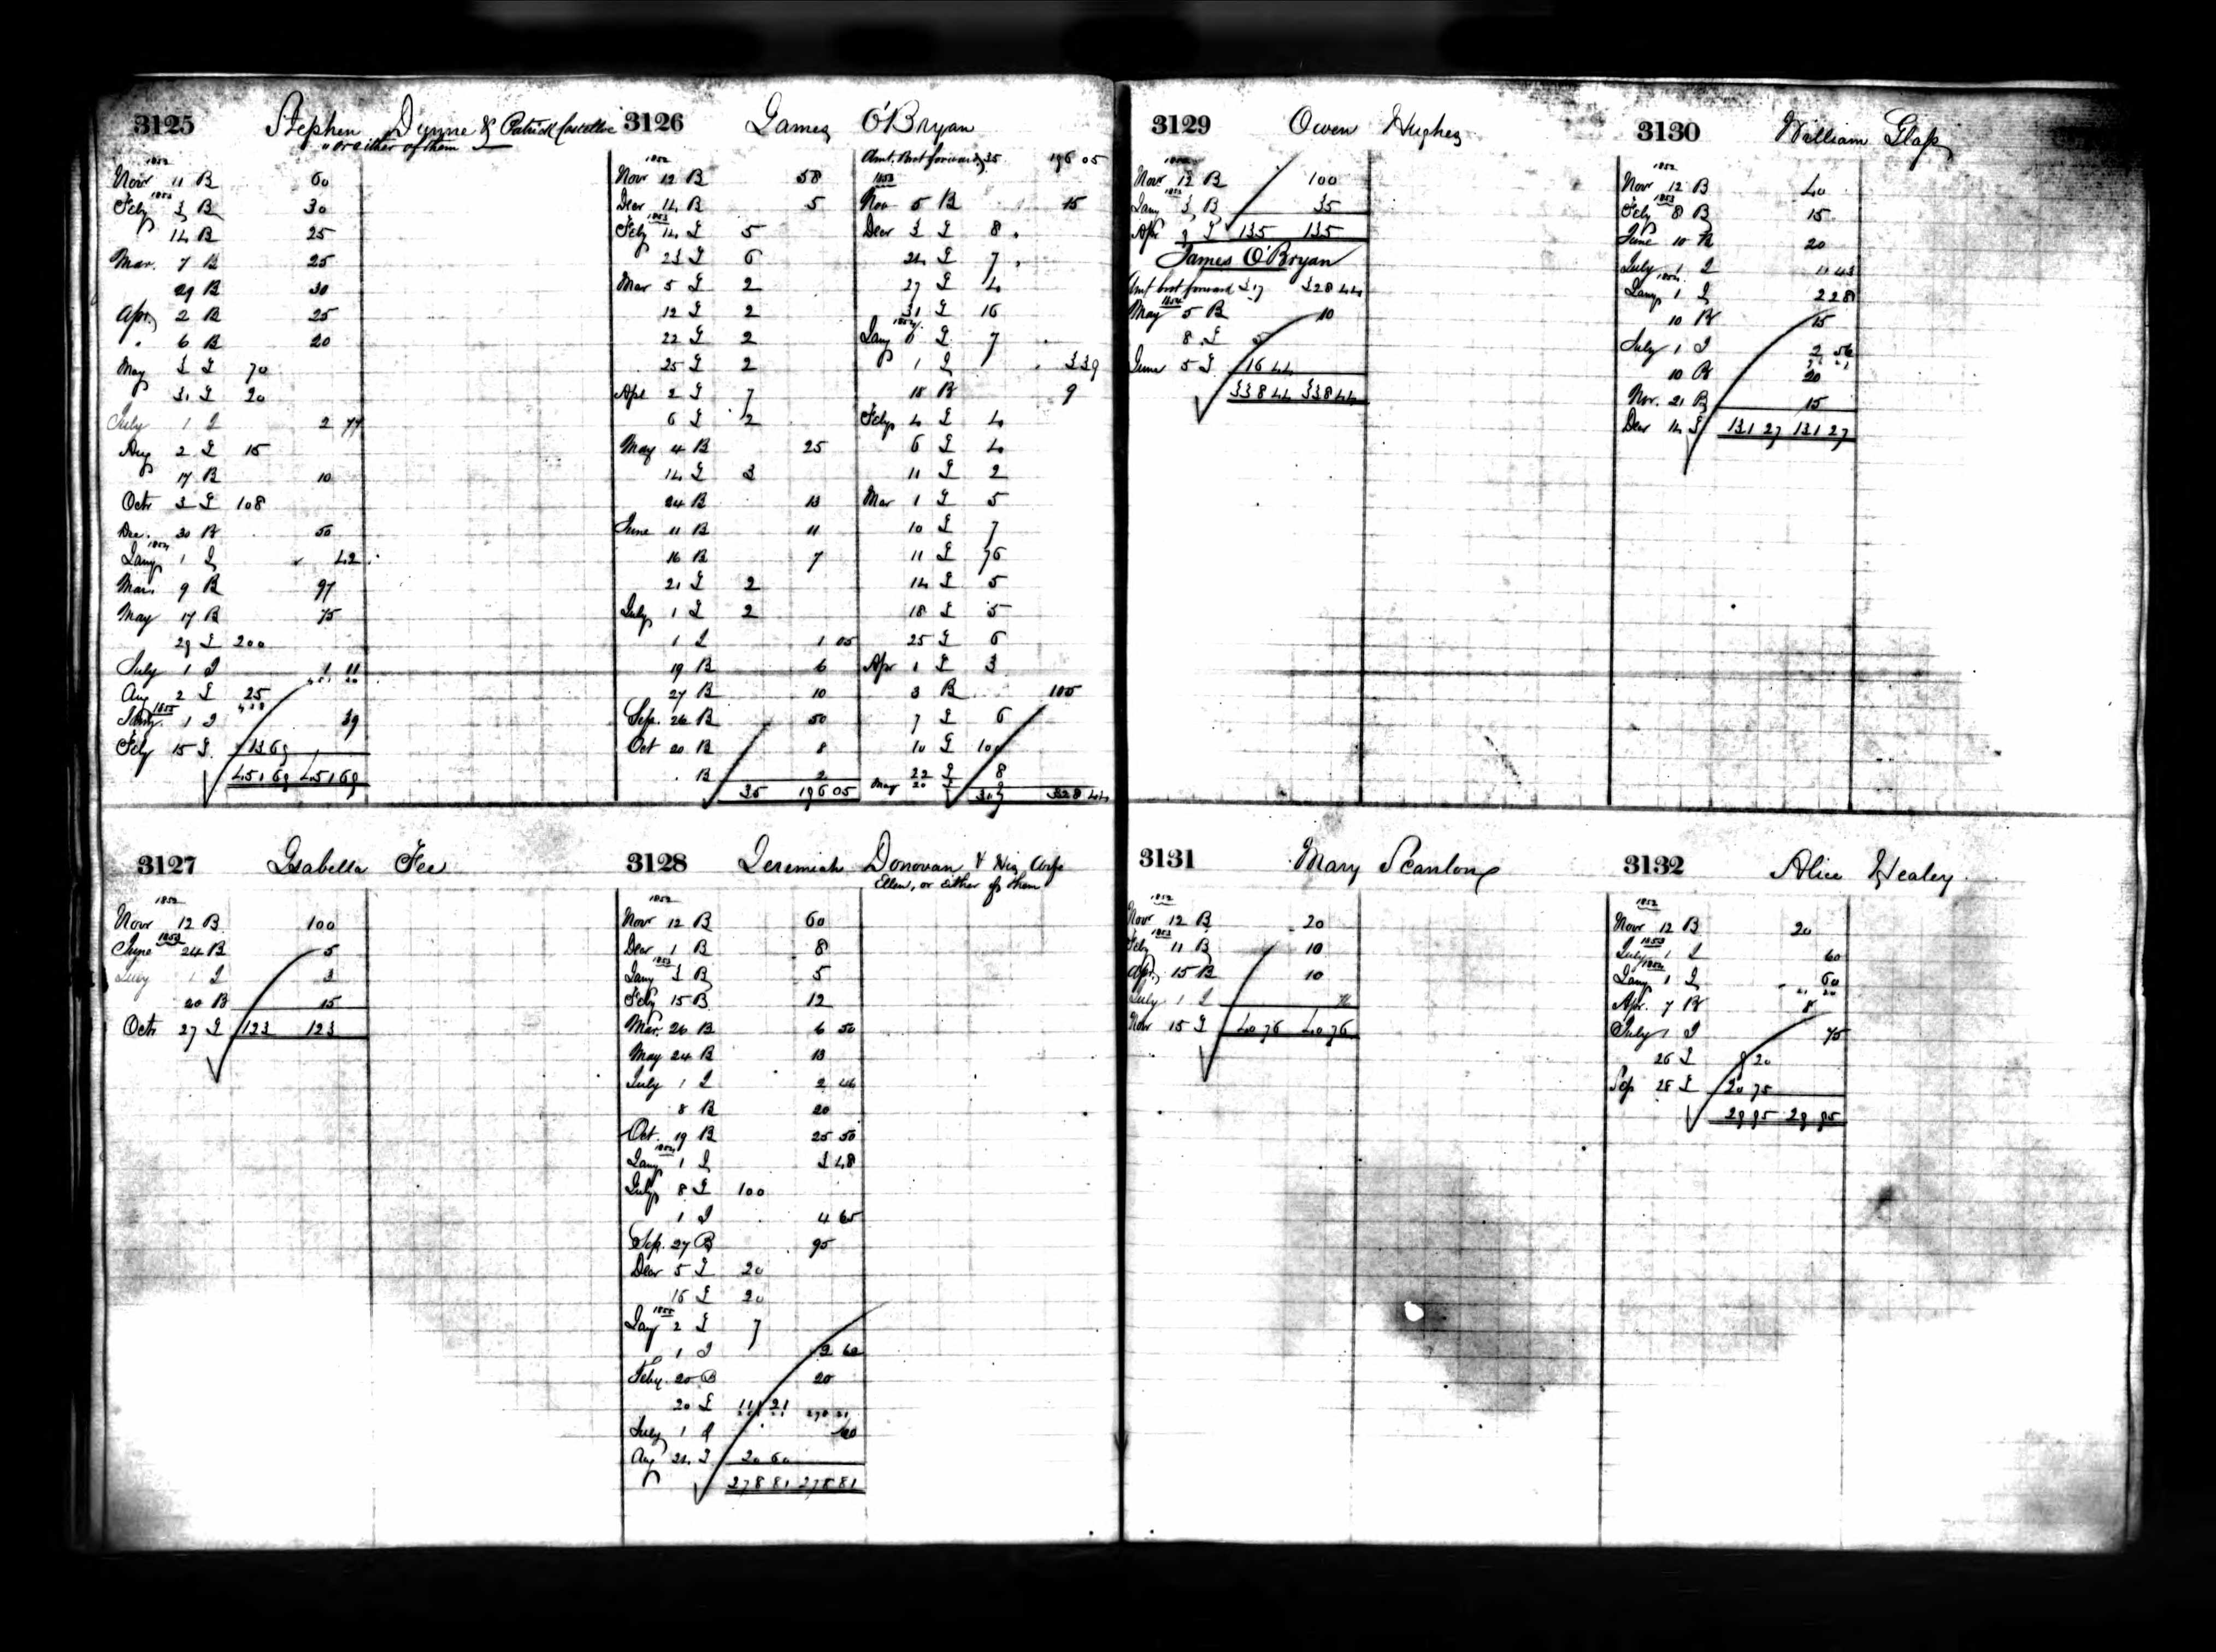 3125 Stephen Dynne & Patrick Costelloe
" or either of them
1852
Novr 11 B 60
1853
Feby 3 B 30
14 B 25
Mar. 7 B 25
29 B 30
Apr. 2 B 25
" 6 B 20
May 3 L 70
31 L 20
July 1 I 2 77
Aug 2 L 15
17 B 10
Octr 3 L 108
Dec. 30 B 50
1854
Jany 1 I 42
Mar. 9 B 97
May 17 B 75
29 L 200
July 1 I 1 11
Aug 2 L 25
1855
Jany. 1 I 39
Feby 15 L 13 69
451 69 451 69
3126 James O'Bryan
1852
Novr 12 B 58
Decr 14 B 5
1853
Feby 14 L 5
23 L 6
Mar 5 L 2
12 L 2
22 L 2
25 L 2
Apl 2 L 7
6 L 2
May 4 B 25
14 L 3
24 B 13
June 11 B 11
16 B 7
21 L 2
July 1 L 2
1 I 1 05
19 B 6
27 B 10
Sep. 26 B 50
Oct 20 B 8
B 2
35 196 05
Amt. Brot forward 35 196 05
1853
Nov 5 B 15
Decr 3 L 8
24 L 7
27 L 4
31 L 16
1854
Jany 6 L 7
1 I 3 39
18 B 9
Feby 4 L 4
6 L 4
11 L 2
Mar 1 L 5
10 L 7
11 L 76
14 L 5
18 L 5
25 L 6
Apr 1 L 3
3 B 105
7 L 6
10 L 100
22 L 8
May 20
317 328 44
3127 Isabella Fee
1852
Novr 12 B 100
1853
June 24 B 5
July 1 I 3
20 B 15
Octr 27 L 123 123
3128 Jeremiah Donovan & His Wife
Ellen, or either of them
1852
Novr 12 B 60
Decr 1 B 8
1853
Jany 3 B 5
Feby 15 B 12
Mar. 26 B 6 50
May 24 B 13
July 1 I 2 46
8 B 20
Oct. 19 B 25 50
1854
Jany 1 I 3 48
July 8 L 100
1 I 4 65
Sep. 27 B 95
Decr 5 L 20
16 L 20
1855
Jany 2 L 7
1 I 2 62
Feby 20 B 20
20 L 111 21
July 1 I 60
Aug 21 L 20 60
278 81 278 81
3129 Owen Hughes
1852
Novr 12 B 100
1853
Jany 3 B 35
Apr 9 L 135 135
James O'Bryan
Amt brot forward 317 328 44
1854
May 5 B 10
8 L 5
June 5 L 16 44
338 44 338 44
3130 William Glass
1852
Novr 12 B 40
1853
Feby 8 B 15
June 10 B 20
July 1 I 1 43
1854
Jany 1 I 2 28
10 B 15
July 1 I 2 56
10 B 20
Nov. 21 B 15
Decr 14 L 131 27 131 27
3131 Mary Scanlon
1852
Novr 12 B 20
1853
Feby 11 B 10
Apr 15 B 10
July 1 I 76
Novr 15 L 40 76 40 76
3132 Alice Healey
1852
Novr 12 B 20
1853
July 1 I 60
1854
Jany 1 I 60
Apr. 7 B 8
July 1 I 75
26 L 9 20
Sep 28 L 20 75
29 95 29 95